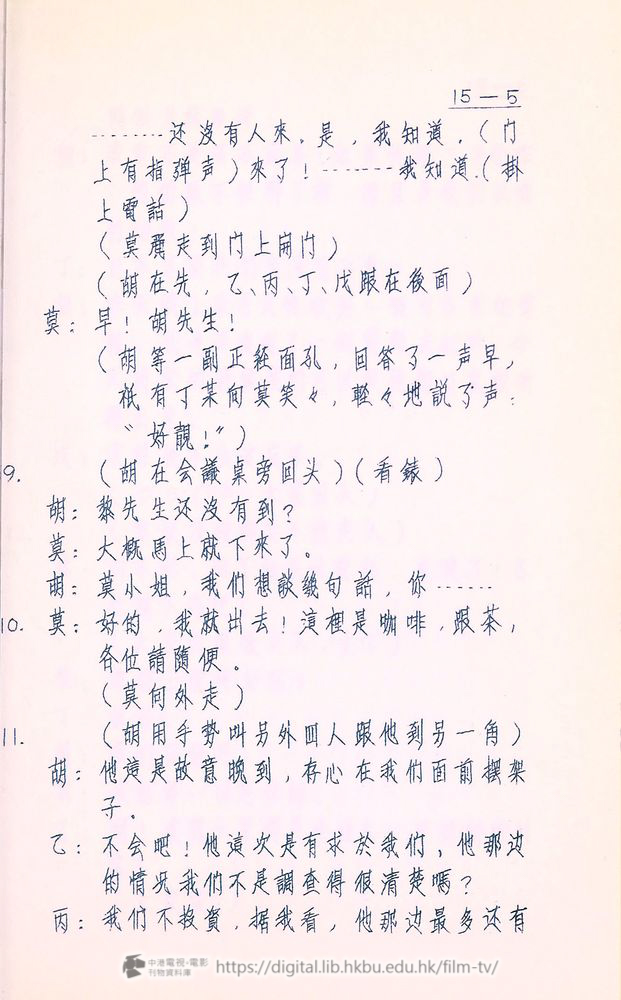 15-5
………还沒有人來。是，我知道。（门
上有指弹声）來了！………我知道.（掛
上電話）
（莫麗走到门上開门）
（胡在先，乙、丙、丁、戊跟在後面）
莫：早！胡先生！
（胡等一副正経面孔，回答了一声早，
祇有丁某向莫笑々，輕々地説了声：
“好靚！”）
9. （胡在会議桌旁回头）（看錶）
胡：黎先生还沒有到？
莫：大概馬上就下來了。
胡：莫小姐，我们想談幾句話，你……
10. 莫：好的，我就出去！這裡是咖啡，跟茶，
各位請隨便。
（莫向外走）
11. （胡用手势叫另外四人跟他到另一角）
胡：他這是故意晚到，存心在我们面前擺架
子。
乙：不会吧！他這次是有求於我们，他那边
的情况我们不是調查得很清楚嗎？
丙：我们不投資，据我看，他那边最多还有
中港電視·電影
刊物資料庫
https://digital.lib.hkbu.edu.hk/film-tv/